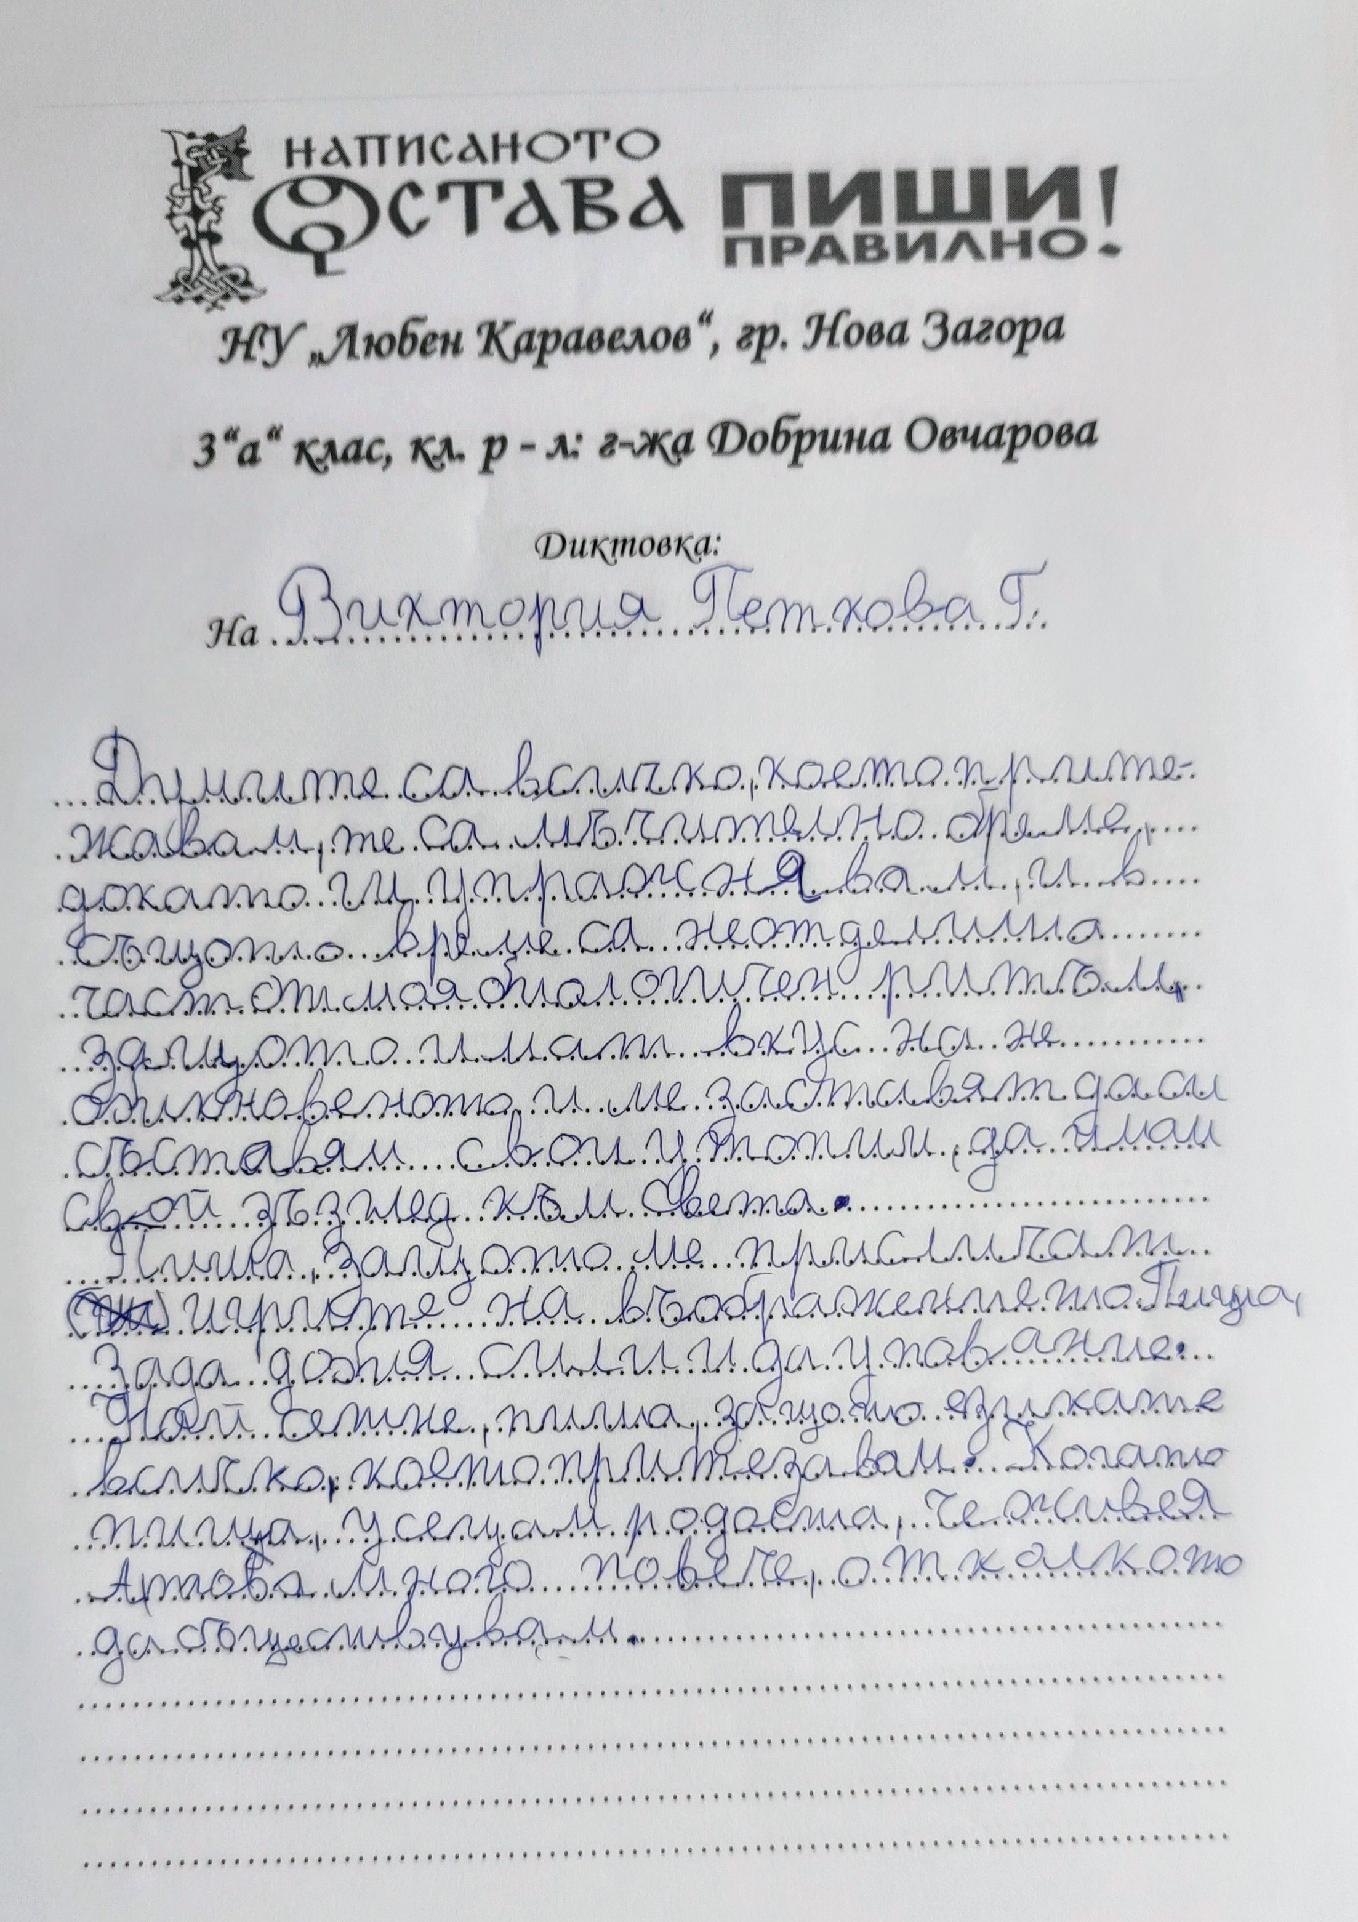 НАПИСАНОТО
ОСТАВА
ПИШИ!
ПРАВИЛНО
НУ „Любен Каравелов“, гр. Нова Загора
3“а“ клас, кл. р - л: г-жа Добрина Овчарова
Диктовка:
На Виктория Петкова Г.
Думите са всичко, което прите-
жавам, те са мъчително бреме,
докато ги упражнявам, и в
същото време са неотделима
част от моя биологичен ритъм,
защото имат вкус на не
обикновеното и ме заставят да си
съставям свои утопии, да имам
свой зъзглед към света.
Пиша, защото ме присличат
игрите на въображението. Пиша,
Зада добия сили и да упование.
Най сетне, пиша, защото езикате
всичко, което притезавам. Когато
пиша, усещам родоста, че живея
Атова много повече, от колкото
да съществувам.